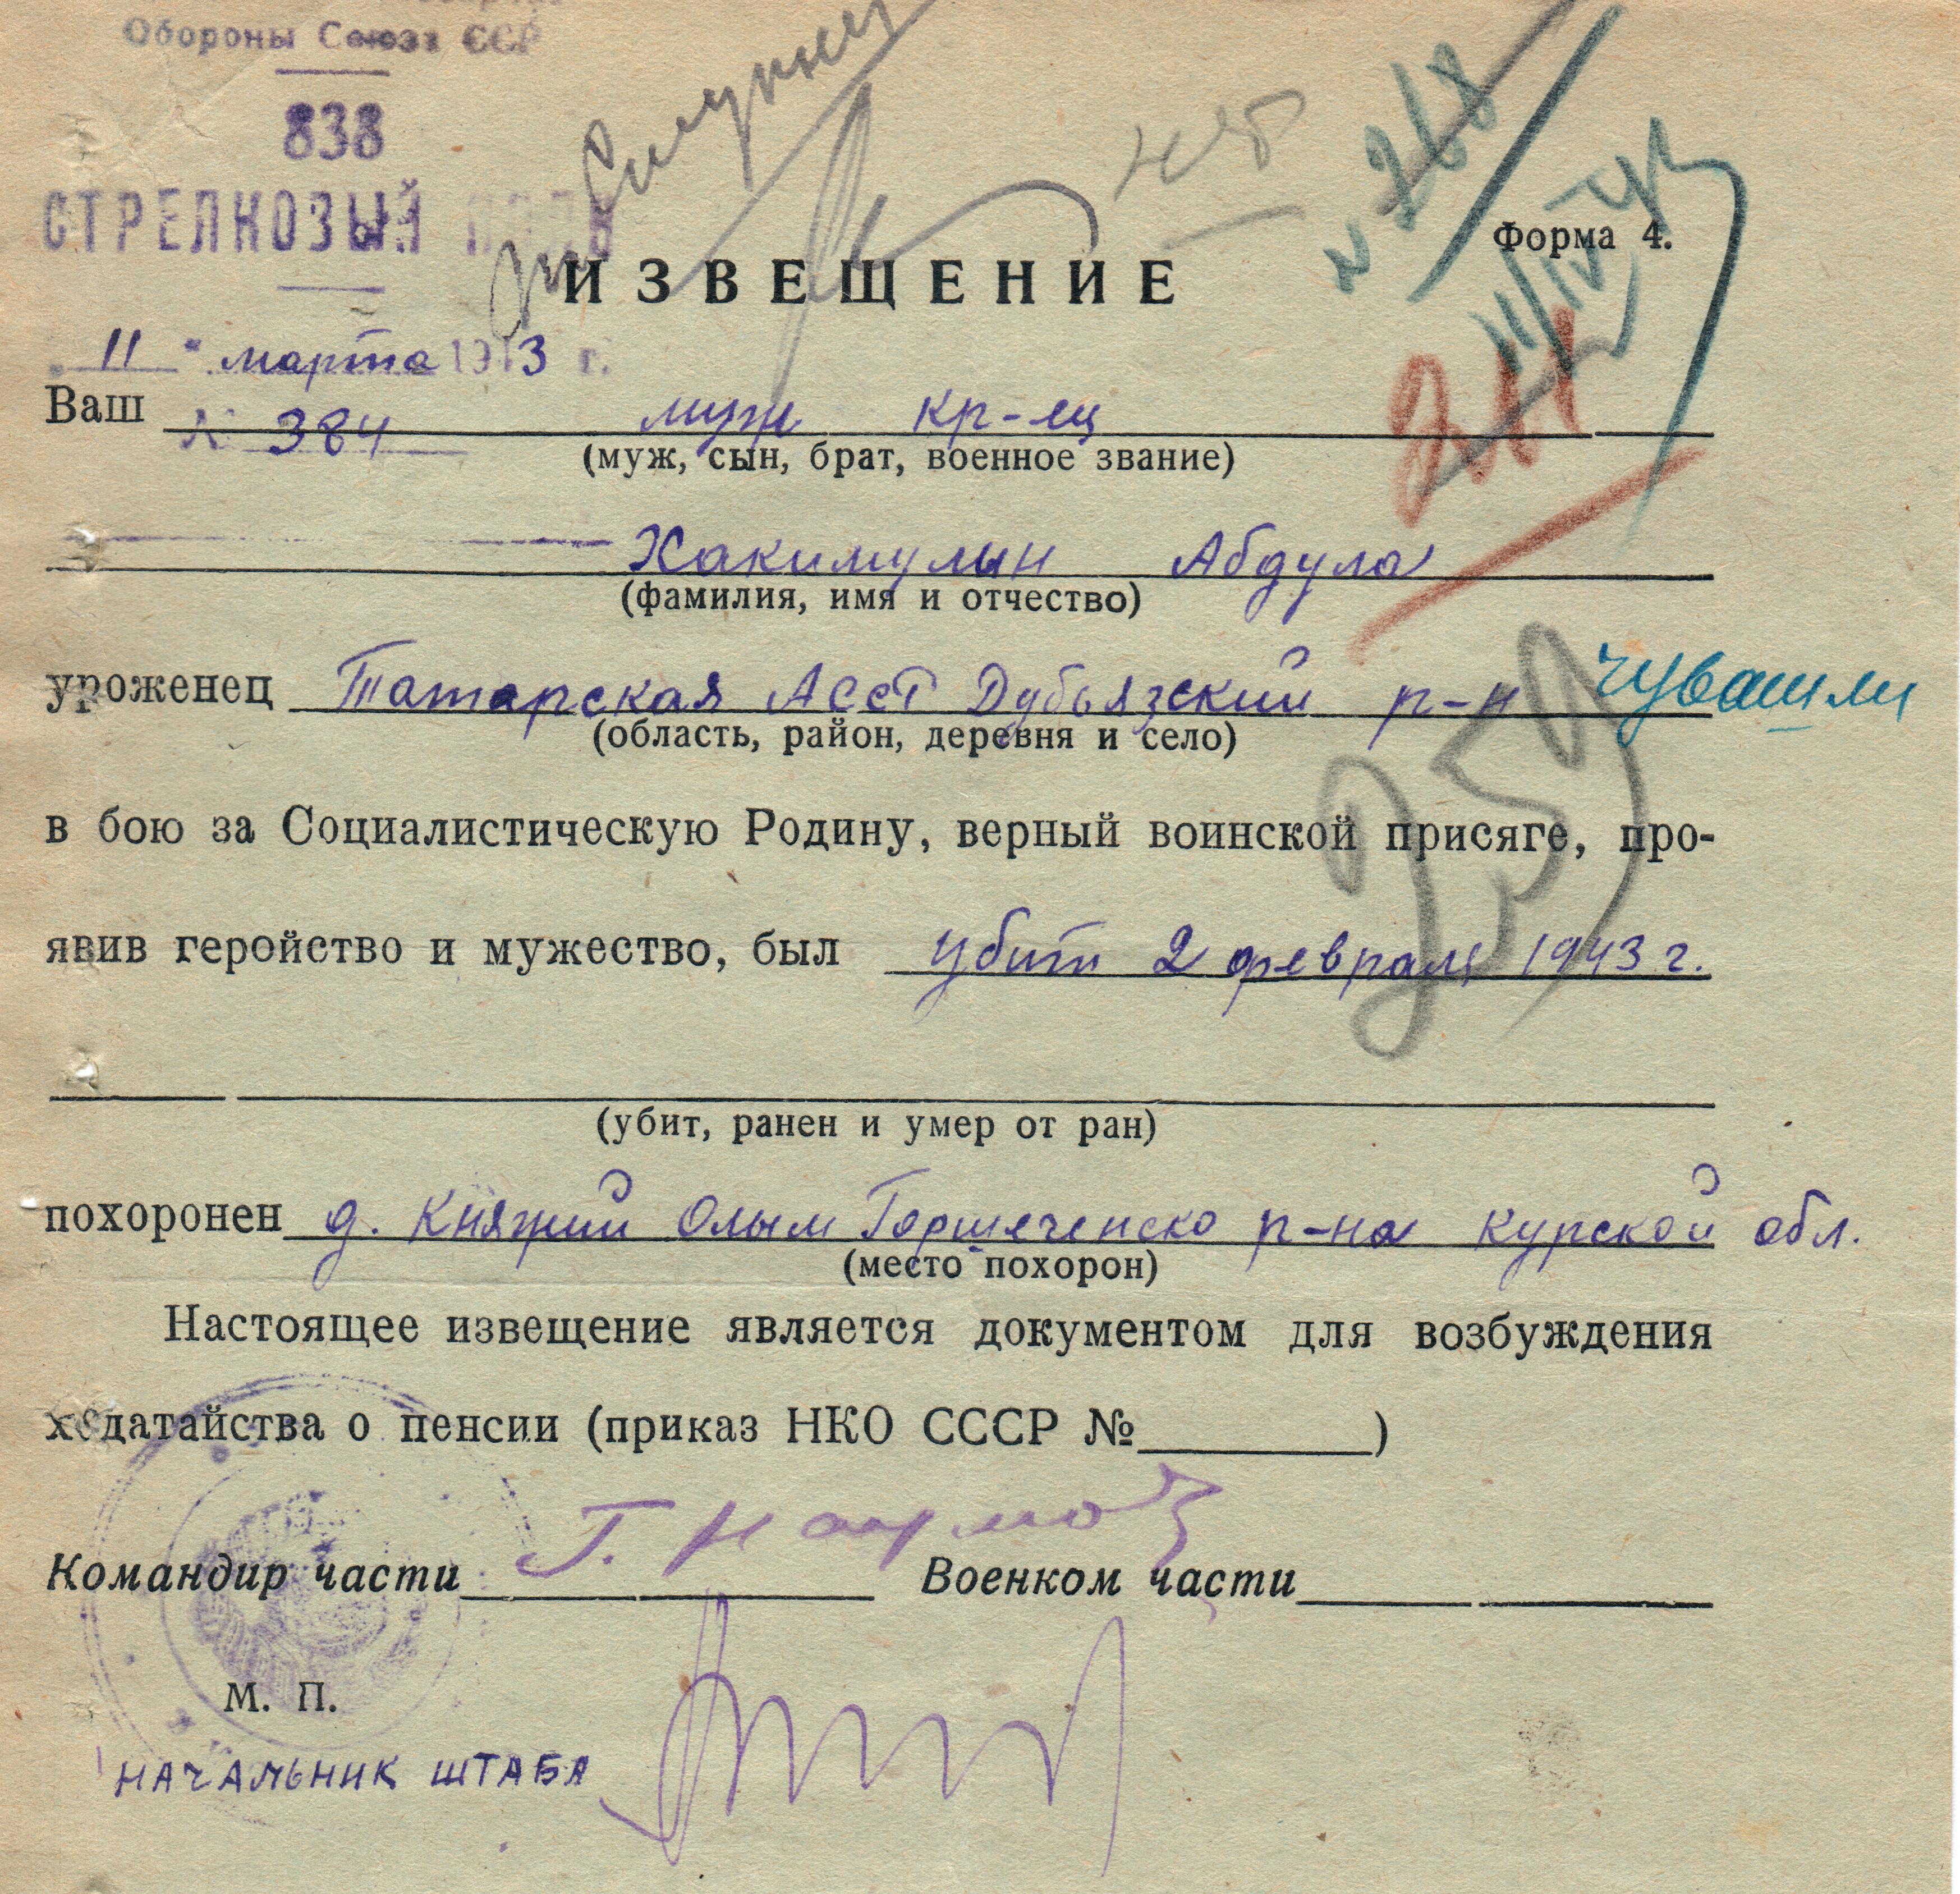 Обороны Союза ССР
838
СТРЕЛКОВЫЙ ПОЛК
№ 268
Форма 4.
ИЗВЕЩЕНИЕ
11 " марта 1943 г.
№ 384
Ваш муж кр-ец
(муж, сын, брат, военное звание)
Хакимулин Абдула
(фамилия, имя и отчество)
уроженец Татарская АССР Дубьязский р-н Чувашли
(область, район, деревня и село)
в бою за Социалистическую Родину, верный воинской присяге, про-
явив геройство и мужество, был убит 2 февраля 1943 г.
(убит, ранен и умер от ран)
похоронен д. Княжий Олым Горшеченско р-на Курской обл.
(место похорон)
Настоящее извещение является документом для возбуждения
ходатайства о пенсии (приказ НКО СССР №________)
Командир части Военком части
М. П.
НАЧАЛЬНИК ШТАБА